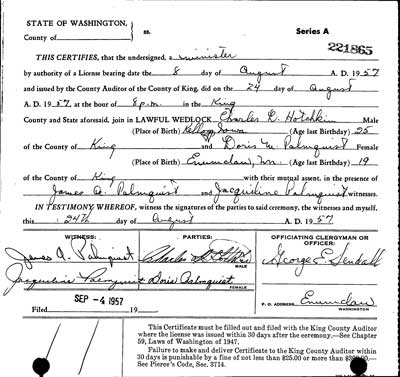 STATE OF WASHINGTON,
County of
ss.
Series A
221865
THIS CERTIFIES, that the undersigned, a minister
by authority of a License bearing date the 8 day of August A. D. 1957
and issued by the County Auditor of the County of King, did on the 24 day of August
A. D. 1957, at the hour of 8 p.m. in the King
County and State aforesaid, join in LAWFUL WEDLOCK Charles R. Hotchkin Male
(Place of Birth) Kellogg, Iowa (Age last Birthday) 25
of the County of King and Doris M. Palmquist Female
(Place of Birth) Enumclaw, Wn. (Age last Birthday) 19
of the County of King with their mutual assent, in the presence of
James A. Palmquist and Jacqueline Palmquist witnesses.
IN TESTIMONY WHEREOF, witness the signatures of the parties to said ceremony, the witnesses and myself,
this 24th day of August A. D. 1957
WITNESS:
PARTIES:
OFFICIATING CLERGYMAN OR OFFICER:
James A. Palmquist
Charles R. Hotchkin
MALE
George E.
Jacqueline Palmquist
Doris Palmquist
FEMALE
SEP - 4 1957
Filed 19
P. O. ADDRESS, Enumclaw
WASHINGTON
This Certificate must be filled out and filed with the King County Auditor
where the license was issued within 30 days after the ceremony.—See Chapter
59, Laws of Washington of 1947.
Failure to make and deliver Certificate to County Auditor within
30 days is punishable by a fine of not less than $25.00 or more than
See Pierce's Code, Sec. 3714.